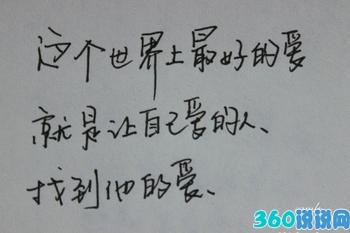 这个世界上最好的爱
就是让自己爱的人、
找到他的爱、
360说说网